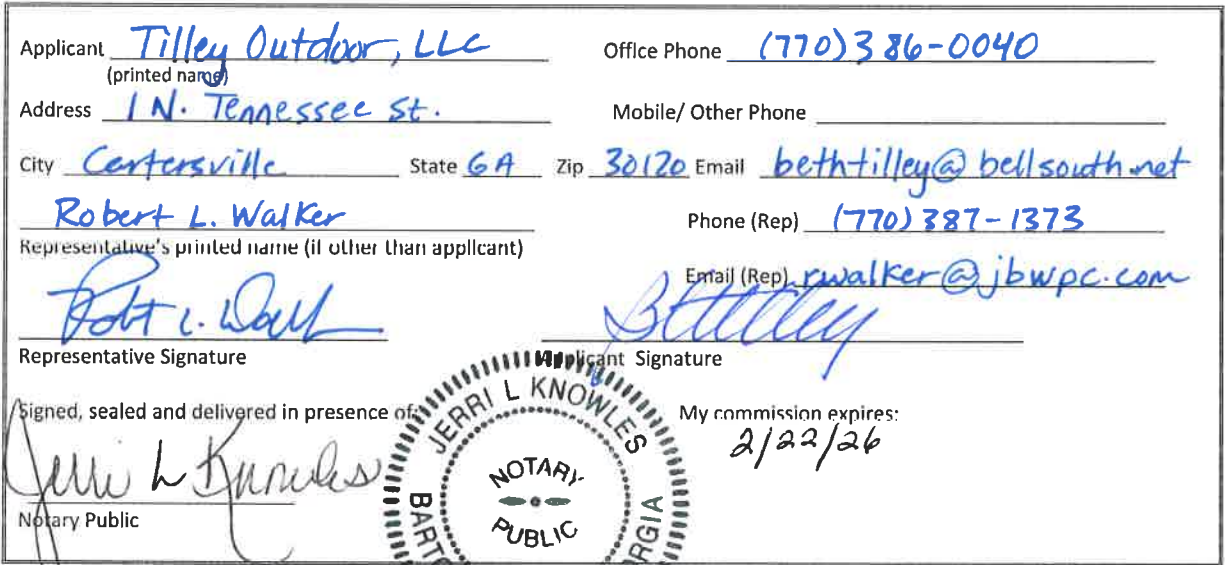 Applicant Tilley Outdoor, LLC Office Phone (770) 386-0040
(printed name)
Address 1 N. Tennessee St. Mobile/ Other Phone
City Cartersville State GA Zip 30120 Email bethtilley@bellsouth.net
Robert L. Walker Phone (Rep) (770) 387-1373
Representative's printed name (if other than applicant)
Email (Rep) rwalker@jbwpc.com
Robt L. Walk Beth Tilley
Representative Signature Applicant Signature
Signed, sealed and delivered in presence of: My commission expires:
2/22/26
Jerri L Knowles
Notary Public
JERRI L KNOWLES
NOTARY
PUBLIC
BARTO
RGIA